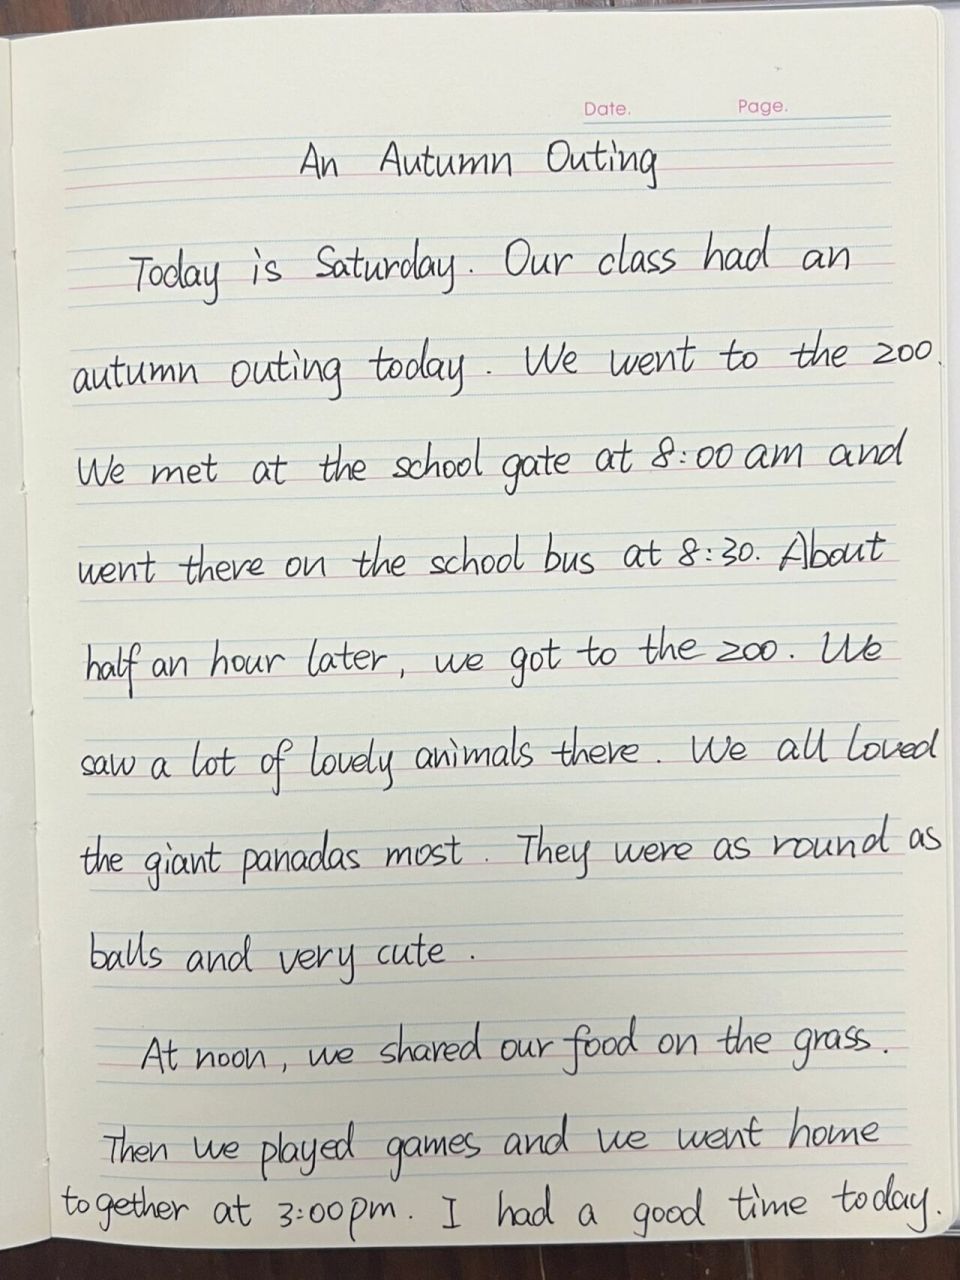 Date. Page.
An Autumn Outing
Today is Saturday. Our class had an
autumn outing today. We went to the zoo.
We met at the school gate at 8:00 am and
went there on the school bus at 8:30. About
half an hour later, we got to the zoo. We
saw a lot of lovely animals there. We all loved
the giant panadas most. They were as round as
balls and very cute.
At noon, we shared our food on the grass.
Then we played games and we went home
together at 3:00pm. I had a good time today.